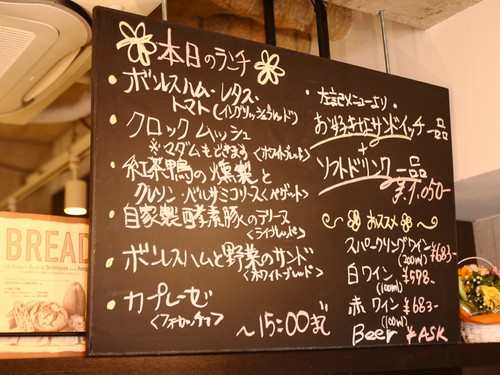 本日のランチ
ボンレスハム・レタス・
トマト(イングリッシュブレッド)
クロックムッシュ
※マダムもできます<ホワイトブレッド>
紅茶鴨の燻製と
クレソン・バルサミコソース<バゲット>
自家製酵素豚への
<ライブレッド>
ボンレスハムと野菜のサンド
<ホワイトブレッド>
カプレーゼ
<フォカッチャ>
~15:00まで
左記メニューより・
お好きなサンドイッチ 一品
+
ソフトドリンク 一品
¥1,050-
おススメ
スパークリングワイン
(200ml) ¥683-
白ワイン ¥598-
(100ml)
赤ワイン ¥683-
(100ml)
Beer ¥ASK
BREAD